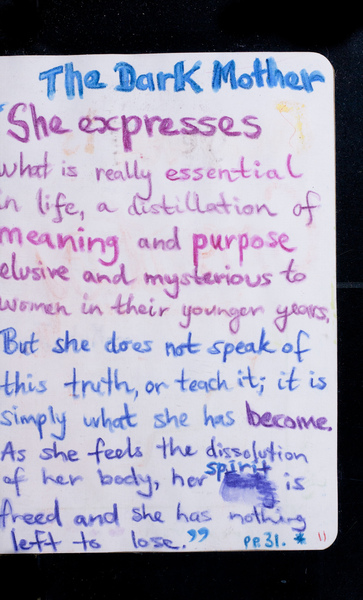 The Dark Mother
"She expresses
what is really essential
in life, a distillation of
meaning and purpose
elusive and mysterious to
women in their younger years.
But she does not speak of
this truth, or teach it; it is
simply what she has become.
As she feels the dissolution
of her body, her spirit is
freed and she has nothing
left to lose." pp.31. * 11